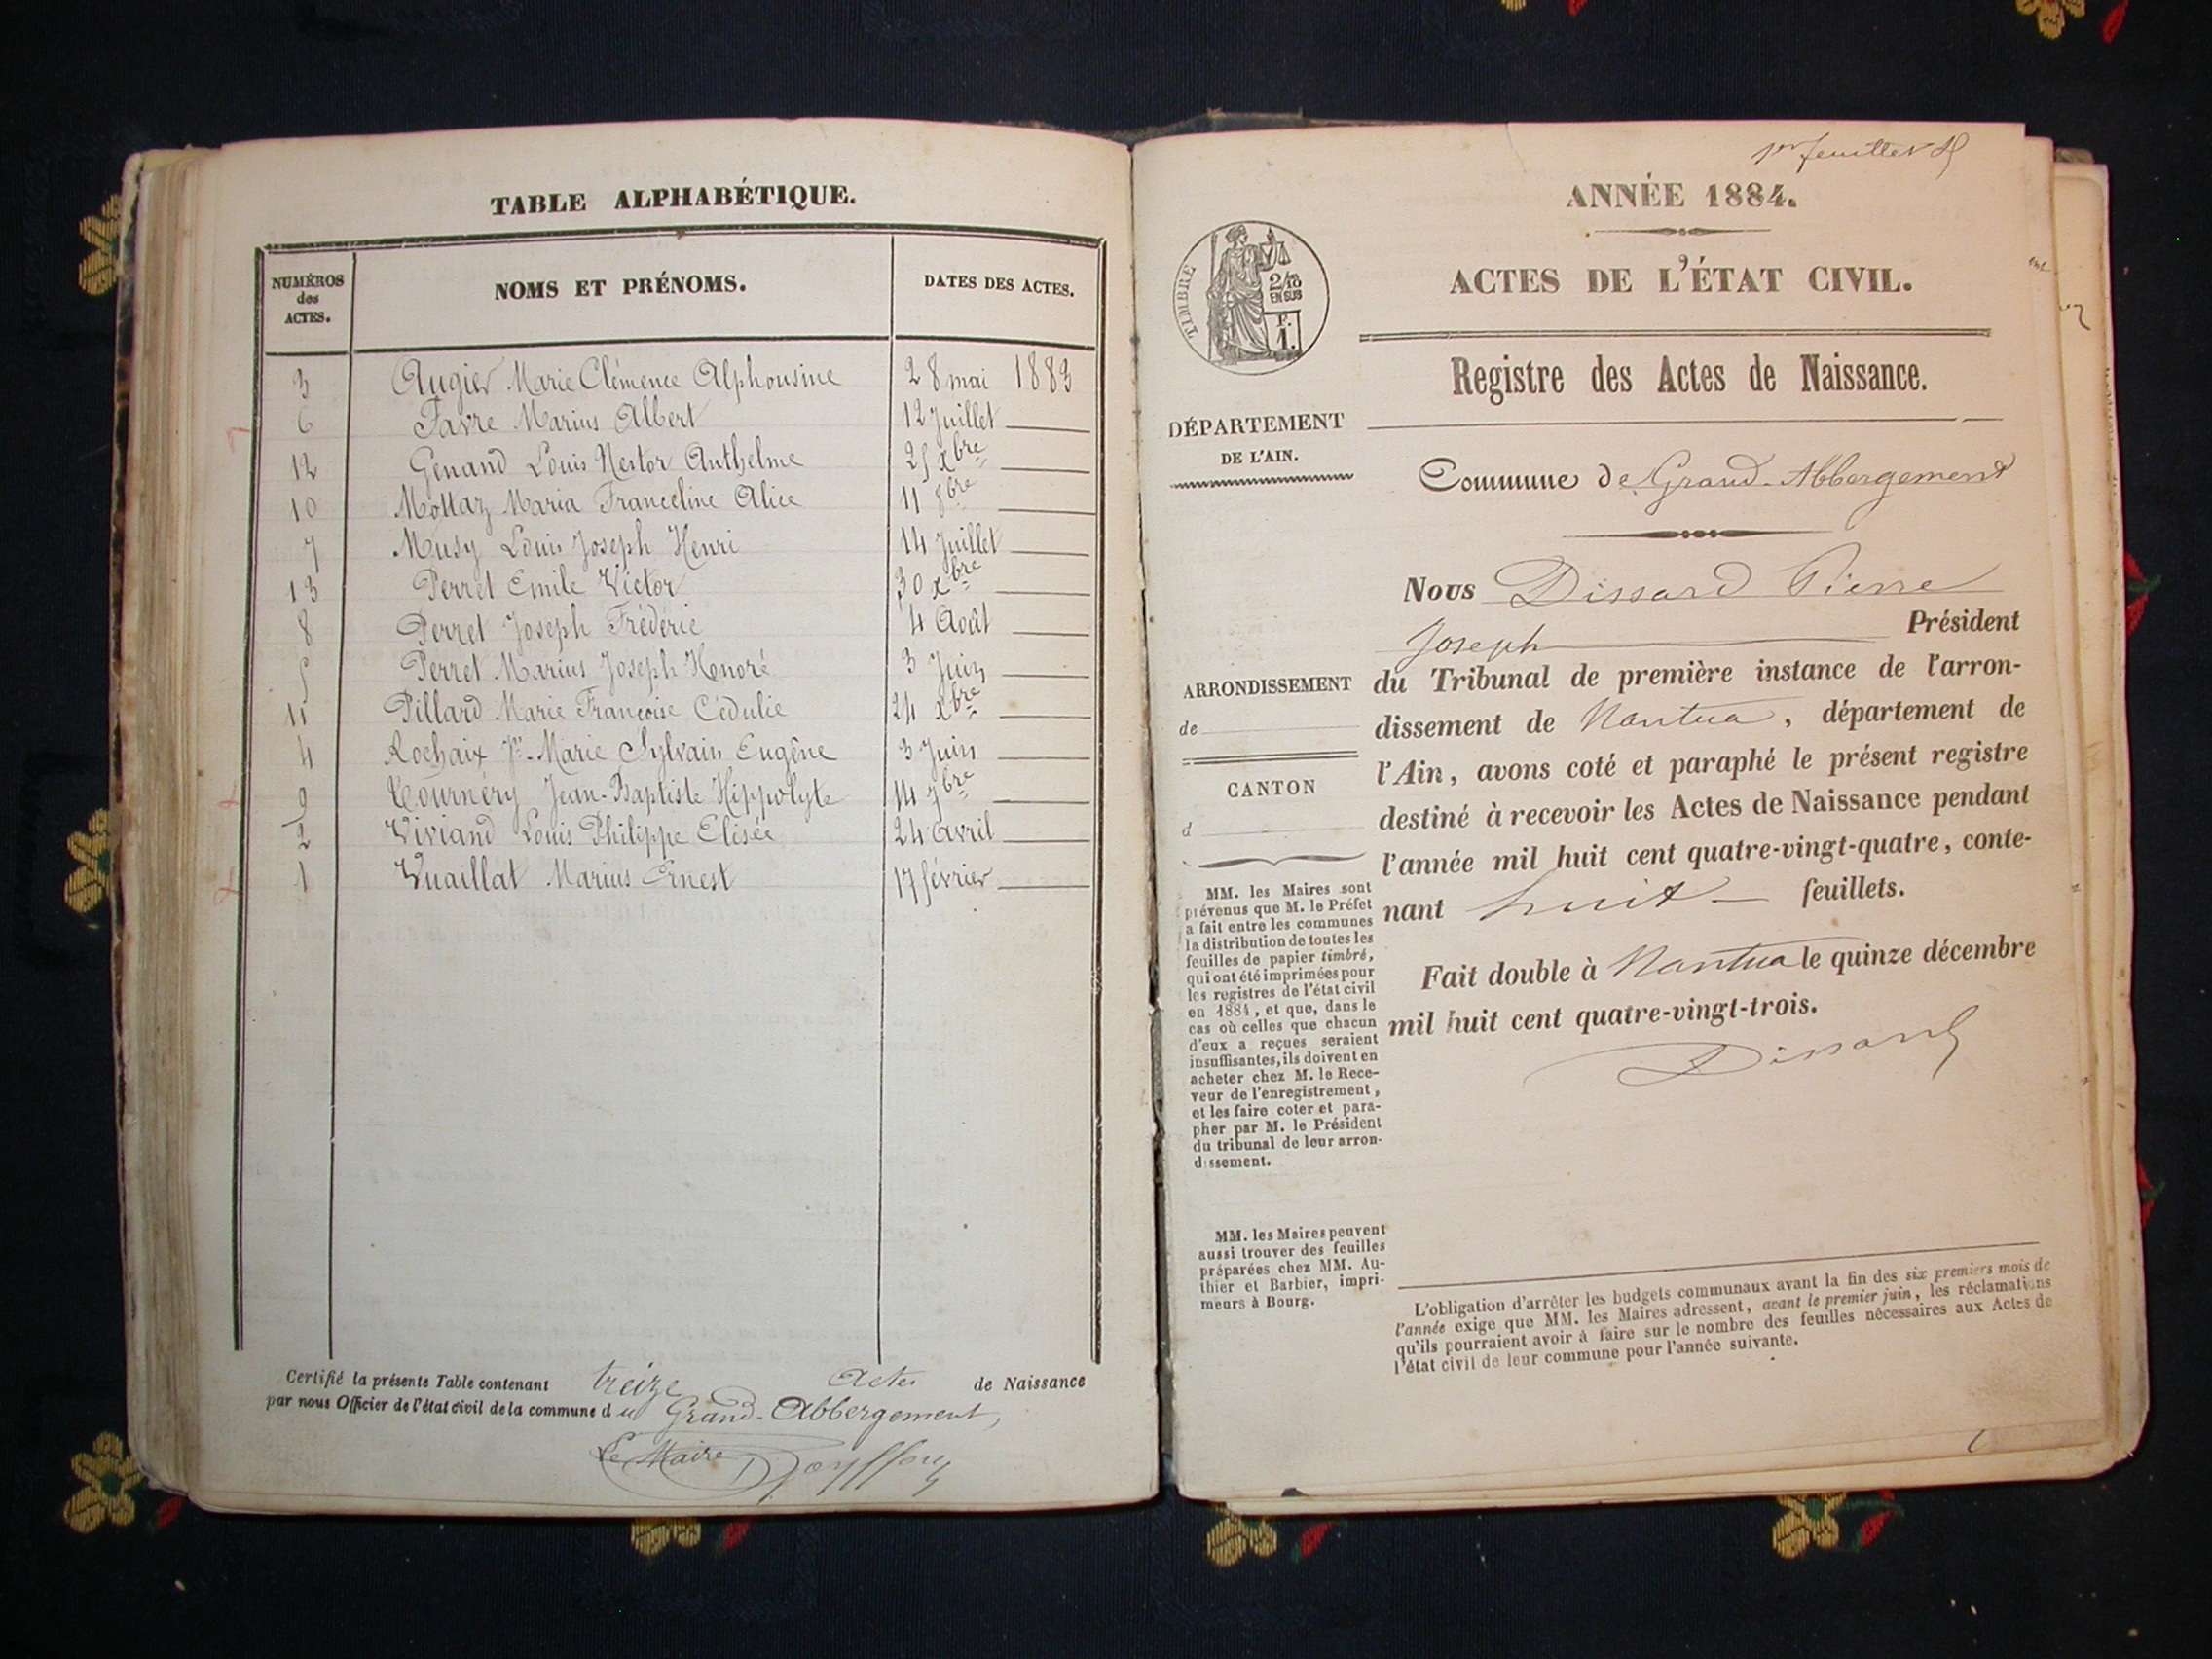 TABLE ALPHABÉTIQUE.
NUMÉROS
des
ACTES.
NOMS ET PRÉNOMS.
DATES DES ACTES.
3 Augier Marie Clémence Alphonsine 28 mai 1883
6 Favre Marius Albert 12 Juillet
12 Genand Louis Nestor Anthelme 25 xbre
10 Mottaz Maria Franceline Alice 11 8bre
7 Musy Louis Joseph Henri 14 Juillet
13 Perret Emile Victor 30 xbre
8 Perret Joseph Frédéric 4 Août
5 Perret Marius Joseph Honoré 3 Juin
11 Pillard Marie Françoise Cédulie 24 xbre
4 Rochaix Jh - Marie Sylvain Eugène 3 Juin
9 Tournery Jean-Baptiste Hippolyte 14 7bre
2 Viviand Louis Philippe Elisée 24 avril
1 Vuaillat Marius Ernest 17 février
Certifié la présente Table contenant treize Actes de Naissance
par nous Officier de l'état civil de la commune du Grand-Abbergement,
Le Maire
1er feuillet
ANNÉE 1884.
ACTES DE L'ÉTAT CIVIL.
TIMBRE
2/10
EN SUS
F.
1.
Registre des Actes de Naissance.
DÉPARTEMENT
DE L'AIN.
Commune de Grand-Abbergement
Nous Dissard Pierre
Joseph Président
du Tribunal de première instance de l'arron-
dissement de Nantua, département de
l'Ain, avons coté et paraphé le présent registre
destiné à recevoir les Actes de Naissance pendant
l'année mil huit cent quatre-vingt-quatre, conte-
nant huit feuillets.
Fait double à Nantua le quinze décembre
mil huit cent quatre-vingt-trois.
Dissard
ARRONDISSEMENT
de
CANTON
d
MM. les Maires sont
prévenus que M. le Préfet
a fait entre les communes
la distribution de toutes les
feuilles de papier timbré,
qui ont été imprimées pour
les registres de l'état civil
en 1884, et que, dans le
cas où celles que chacun
d'eux a reçues seraient
insuffisantes, ils doivent en
acheter chez M. le Rece-
veur de l'enregistrement,
et les faire coter et para-
pher par M. le Président
du tribunal de leur arron-
dissement.
MM. les Maires peuvent
aussi trouver des feuilles
préparées chez MM. Au-
thier et Barbier, impri-
meurs à Bourg.
L'obligation d'arrêter les budgets communaux avant la fin des six premiers mois de
l'année exige que MM. les Maires adressent, avant le premier juin, les réclamations
qu'ils pourraient avoir à faire sur le nombre des feuilles nécessaires aux Actes de
l'état civil de leur commune pour l'année suivante.